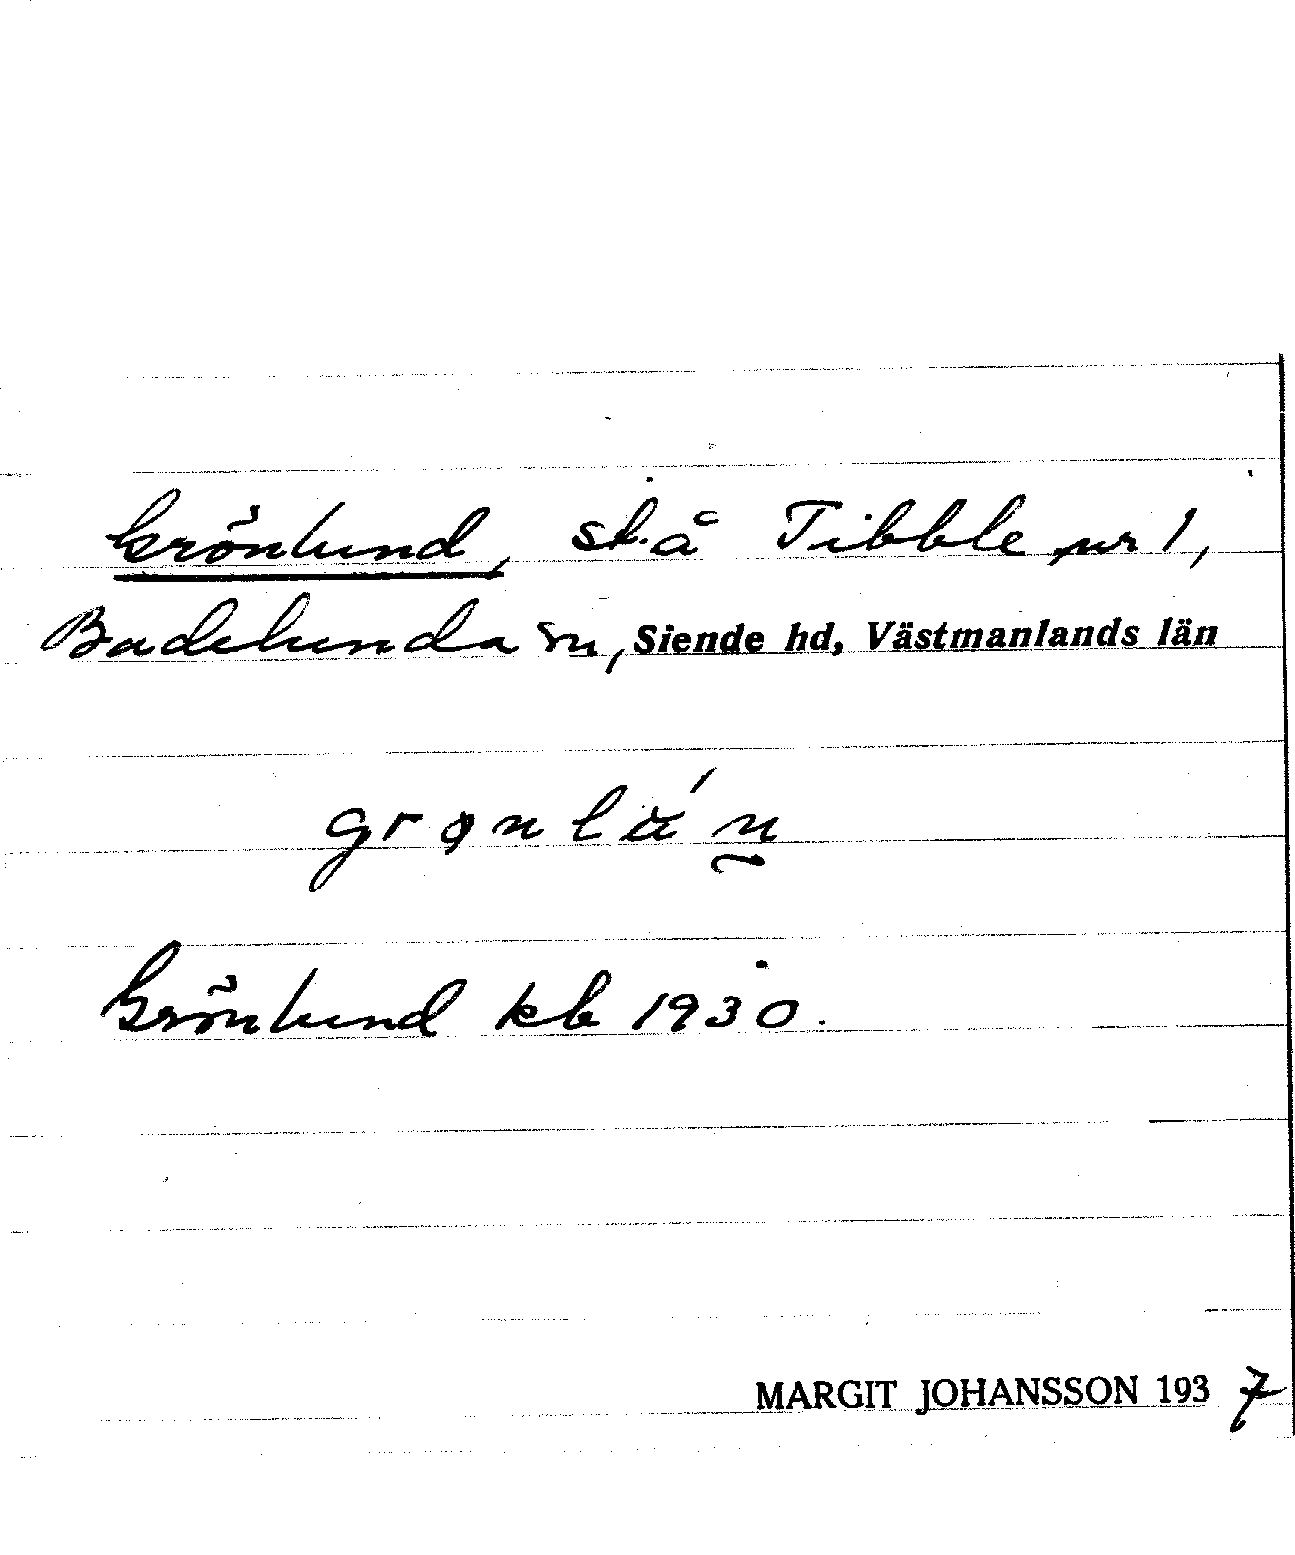 Grönlund, st. å Tibble nr 1,
Badelunda sn, Siende hd, Västmanlands län
Grönlund kb 1930.
MARGIT JOHANSSON 1937